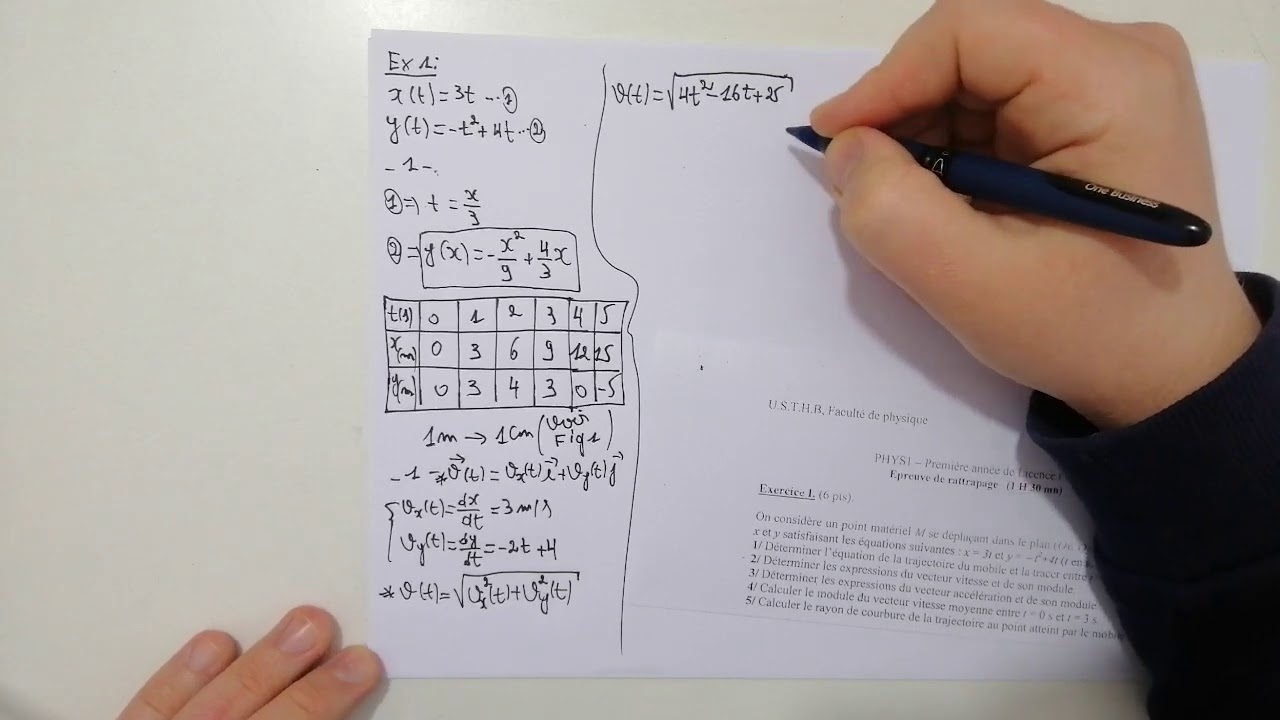 Ex 1:
x(t)=3t ...①
y(t)=-t²+4t...②
-1-.
①=> t = x/3
②=> y(x)=-x²/9+4/3x
t(s) 0 1 2 3 4 5
x(m) 0 3 6 9 12 15
y(m) 0 3 4 3 0 -5
1m → 1cm (voir Fig 1)
-1 -* v⃗(t) = vx(t)i⃗+vy(t)j⃗
{ vx(t)=dx/dt = 3 m/s
vy(t)=dy/dt=-2t+4
* v(t)=√vx²(t)+vy²(t)
v(t)=√4t²-16t+25
One Business
U.S.T.H.B, Faculté de physique
PHYS1 – Première année de Licence
Epreuve de rattrapage (1 H 30 mn)
Exercice 1. (6 pts).
On considère un point matériel M se déplaçant dans le plan
x et y satisfaisant les équations suivantes : x = 3t et y = -t²+4t (t en s,
1/ Déterminer l'équation de la trajectoire du mobile et la tracer entre
2/ Déterminer les expressions du vecteur vitesse et de son module.
3/ Déterminer les expressions du vecteur accélération et de son module
4/ Calculer le module du vecteur vitesse moyenne entre t = 0 s et t = 3 s.
5/ Calculer le rayon de courbure de la trajectoire au point atteint par le mobile